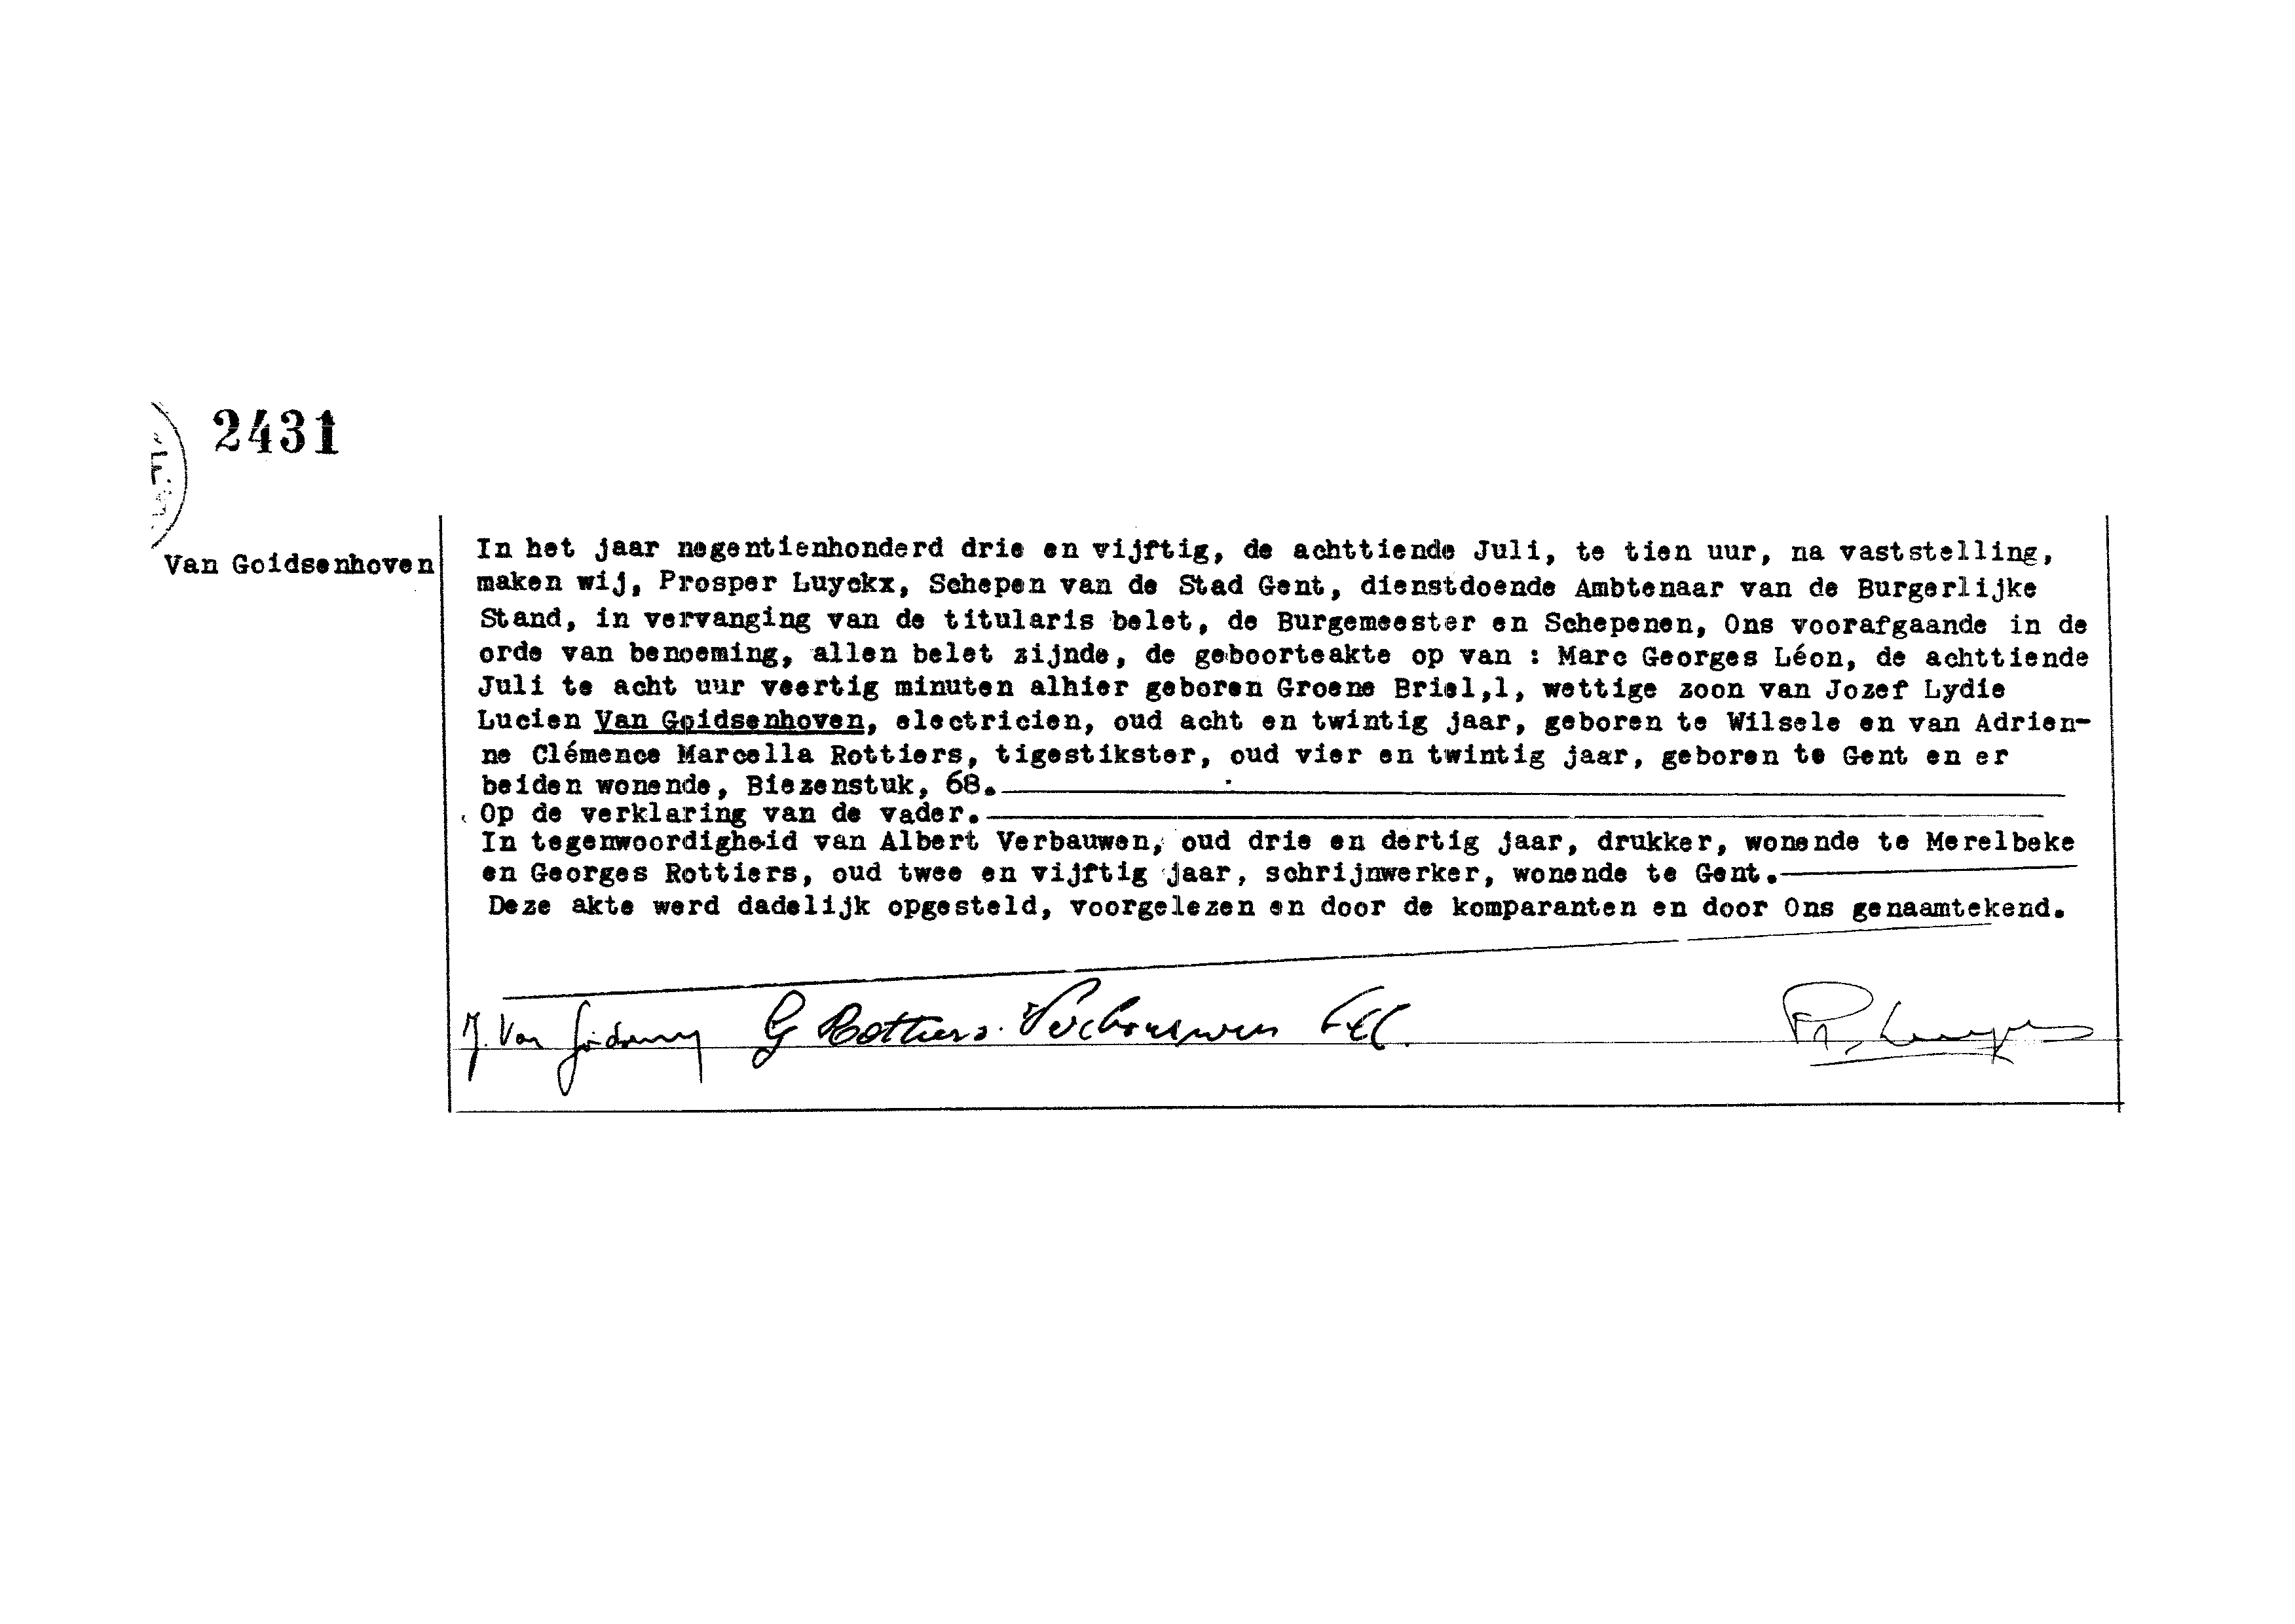 2431
Van Goidsenhoven
In het jaar negentienhonderd drie en vijftig, de achttiende Juli, te tien uur, na vaststelling,
maken wij, Prosper Luyckx, Schepen van de Stad Gent, dienstdoende Ambtenaar van de Burgerlijke
Stand, in vervanging van de titularis belet, de Burgemeester en Schepenen, Ons voorafgaande in de
orde van benoeming, allen belet zijnde, de geboorteakte op van : Marc Georges Léon, de achttiende
Juli te acht uur veertig minuten alhier geboren Groene Briel,1, wettige zoon van Jozef Lydie
Lucien Van Goidsenhoven, electricien, oud acht en twintig jaar, geboren te Wilsele en van Adrien-
ne Clémence Marcella Rottiers, tigestikster, oud vier en twintig jaar, geboren te Gent en er
beiden wonende, Biezenstuk, 68.
Op de verklaring van de vader.
In tegenwoordigheid van Albert Verbauwen, oud drie en dertig jaar, drukker, wonende te Merelbeke
en Georges Rottiers, oud twee en vijftig jaar, schrijnwerker, wonende te Gent.
Deze akte werd dadelijk opgesteld, voorgelezen en door de komparanten en door Ons genaamtekend.
J. Van G Rottiers